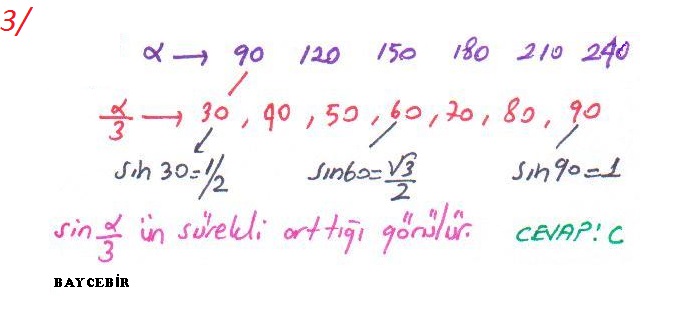 3/
α → 90 120 150 180 210 240
α/3 → 30, 40, 50, 60, 70, 80, 90
sin 30 = 1/2 sin60 = √3/2 sin90 = 1
sin α/3 ün sürekli arttığı görülür. CEVAP: C
BAYCEBİR